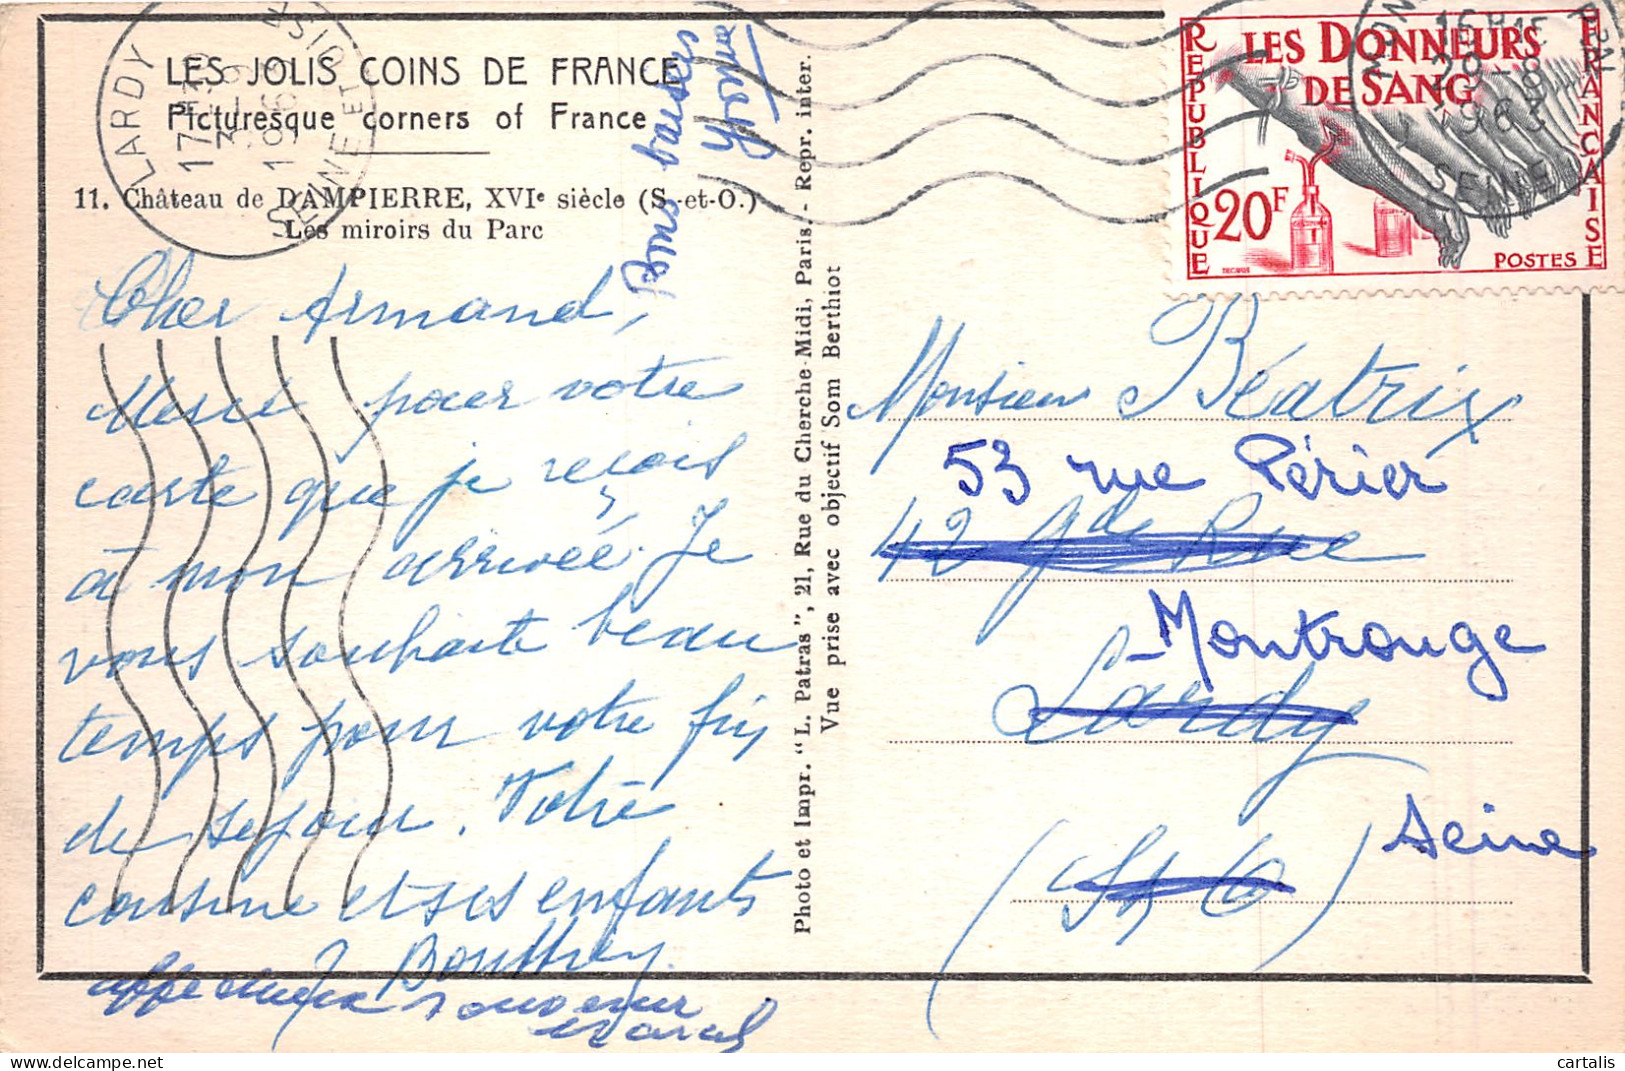 LES JOLIS COINS DE FRANCE
Picturesque corners of France
11. Château de DAMPIERRE, XVIe siècle (S.-et-O.)
Les miroirs du Parc
LARDY
17H30
3-9
196
SEINE ET OISE
Bons baisers
Cher Armand,
Merci pour votre
carte que je reçois
à mon arrivée. Je
vous souhaite beau
temps pour votre fin
de sejour. Votre
cousine et ses enfants
souvenir
Photo et Impr. "L. Patras", 21, Rue du Cherche-Midi, Paris. - Repr. inter.
Vue prise avec objectif Som Berthiot
REPUBLIQUE FRANÇAISE
LES DONNEURS
DE SANG
20F
POSTES
1963
SEINE
Monsieur Béatrix
53 rue Périer
42 gde Rue
Montrouge
Lardy
(S & O) Seine
cartalis